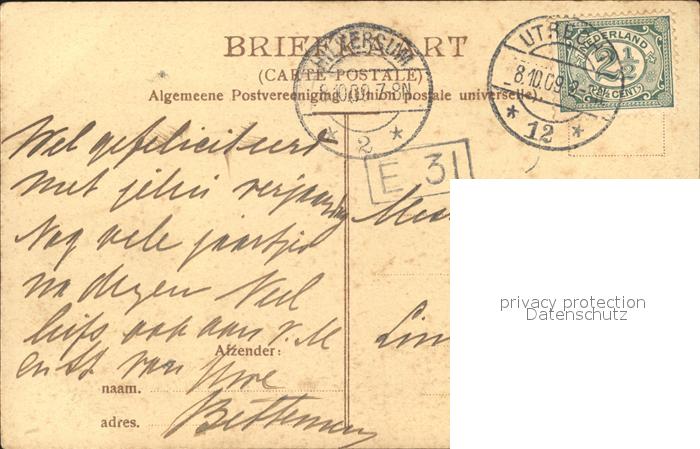 BRIEFKAART
(CARTE-POSTALE)
Algemeene Postvereeniging (Union postale universelle)
HILVERSUM
8.10.09 7-8N
2
UTRECHT
8.10.09.
12
NEDERLAND
2½
2½ CENT
E 31
Wel gefeliciteerd
met jelui verjaardag
Nog vele jaartjes
na dezen Veel
liefs ook aan v. M
en
van
Betteman
Afzender:
naam.
adres.
privacy protection
Datenschutz